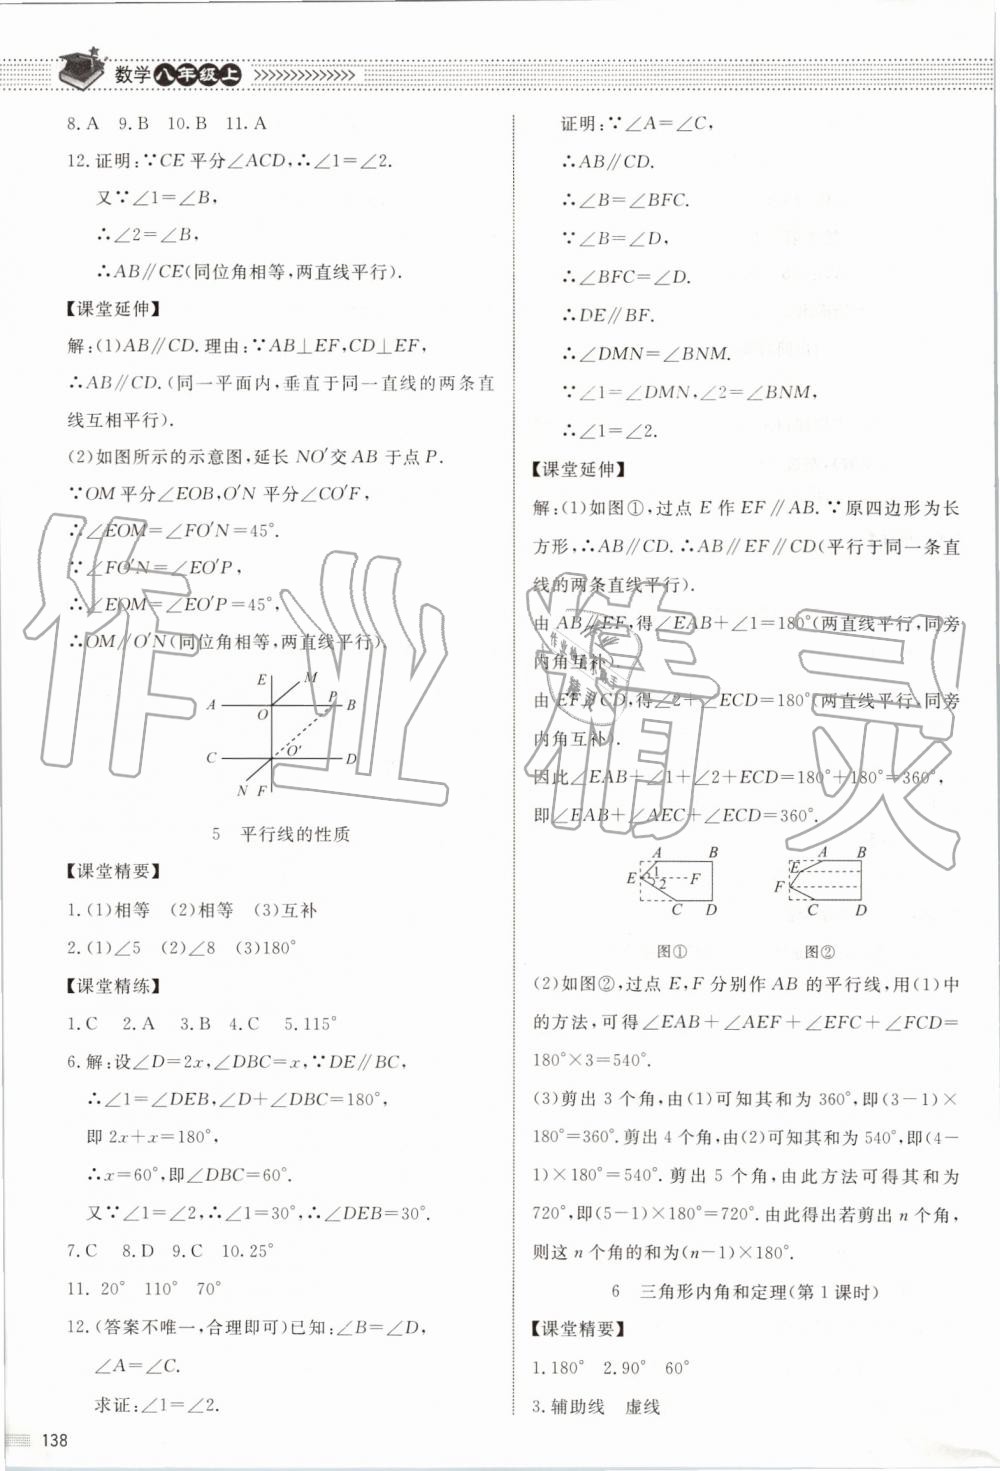 数学八年级上
8.A 9.B 10.B 11.A
12.证明:∵CE平分∠ACD,∴∠1=∠2.
又∵∠1=∠B,
∴∠2=∠B,
∴AB∥CE(同位角相等,两直线平行).
【课堂延伸】
解:(1)AB∥CD.理由:∵AB⊥EF,CD⊥EF,
∴AB∥CD.(同一平面内,垂直于同一直线的两条直
线互相平行).
(2)如图所示的示意图,延长NO′交AB于点P.
∵OM平分∠EOB,O′N平分∠CO′F,
∴∠EOM=∠FO′N=45°.
∵∠FO′N=∠EO′P,
∴∠EOM=∠EO′P=45°,
∴OM∥O′N(同位角相等,两直线平行).
E M
A O P B
C O′ D
N F
5 平行线的性质
【课堂精要】
1.(1)相等 (2)相等 (3)互补
2.(1)∠5 (2)∠8 (3)180°
【课堂精练】
1.C 2.A 3.B 4.C 5.115°
6.解:设∠D=2x,∠DBC=x,∵DE∥BC,
∴∠1=∠DEB,∠D+∠DBC=180°,
即2x+x=180°,
∴x=60°,即∠DBC=60°.
又∵∠1=∠2,∴∠1=30°,∴∠DEB=30°.
7.C 8.D 9.C 10.25°
11. 20° 110° 70°
12.(答案不唯一,合理即可)已知:∠B=∠D,
∠A=∠C.
求证:∠1=∠2.
138
证明:∵∠A=∠C,
∴AB∥CD.
∴∠B=∠BFC.
∵∠B=∠D,
∴∠BFC=∠D.
∴DE∥BF.
∴∠DMN=∠BNM.
∵∠1=∠DMN,∠2=∠BNM,
∴∠1=∠2.
【课堂延伸】
解:(1)如图①,过点E作EF∥AB.∵原四边形为长
方形,∴AB∥CD.∴AB∥EF∥CD(平行于同一条直
线的两条直线平行).
由AB∥EF,得∠EAB+∠1=180°(两直线平行,同旁
内角互补).
由EF∥CD,得∠2+∠ECD=180°(两直线平行,同旁
内角互补).
因此∠EAB+∠1+∠2+ECD=180°+180°=360°,
即∠EAB+∠AEC+∠ECD=360°.
A B
E 1 2 F
C D
图①
A B
E
F
C D
图②
(2)如图②,过点E,F分别作AB的平行线,用(1)中
的方法,可得∠EAB+∠AEF+∠EFC+∠FCD=
180°×3=540°.
(3)剪出3个角,由(1)可知其和为360°,即(3-1)×
180°=360°.剪出4个角,由(2)可知其和为540°,即(4-
1)×180°=540°.剪出5个角,由此方法可得其和为
720°,即(5-1)×180°=720°.由此得出若剪出n个角,
则这n个角的和为(n-1)×180°.
6 三角形内角和定理(第1课时)
【课堂精要】
1.180° 2.90° 60°
3.辅助线 虚线
作业精灵